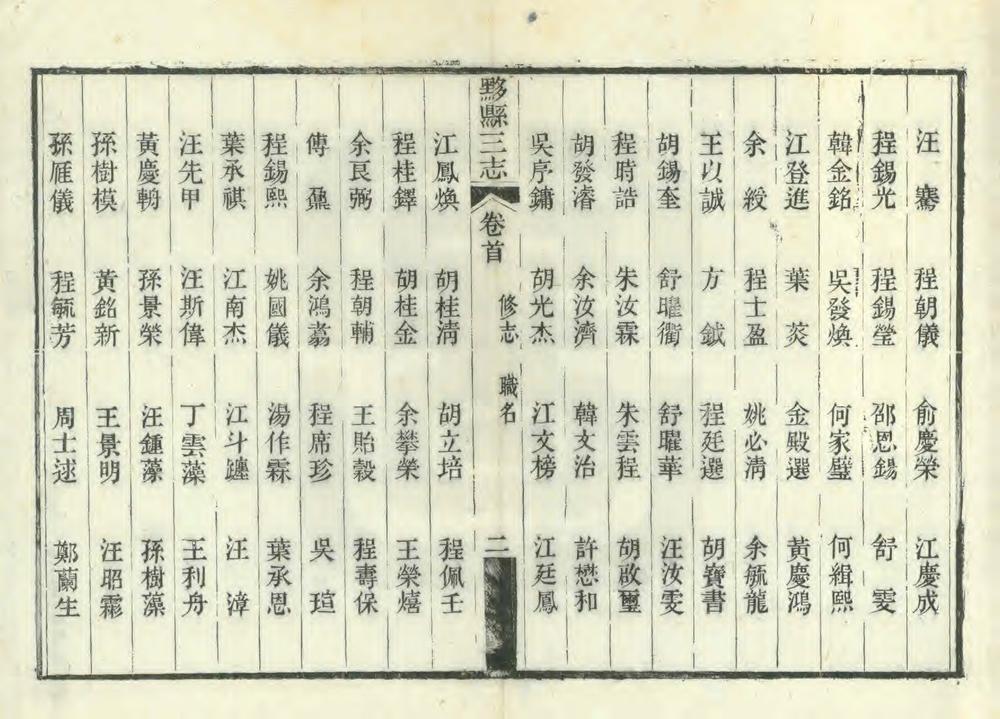 汪騫 程朝儀 俞慶榮 江慶成
程錫光 程錫瑩 邵恩錫 舒雯
韓金銘 吳發煥 何家璧 何緝熙
江登進 葉葵 金殿選 黃慶鴻
余綬 程士盈 姚必淸 余毓龍
王以誠 方鉞 程廷選 胡寶書
胡錫奎 舒曜衢 舒曜華 汪汝雯
程時誥 朱汝霖 朱雲程 胡啟璽
胡發濬 余汝濟 韓文治 許懋和
吳序鏞 胡光杰 江文榜 江廷鳳
黟縣三志 卷首 修志 職名 二
江鳳煥 胡桂淸 胡立培 程佩壬
程桂鐸 胡桂金 余攀榮 王榮熺
余良弼 程朝輔 王貽穀 程壽保
傅鼐 余鴻翥 程席珍 吳瑄
程錫熙 姚國儀 湯作霖 葉承恩
葉承祺 江南杰 江斗躔 汪漳
汪先甲 汪斯偉 丁雲藻 王利舟
黃慶輈 孫景榮 汪鍾藻 孫樹藻
孫樹模 黃銘新 王景明 汪昭霦
孫雁儀 程毓芳 周士述 鄭蘭生